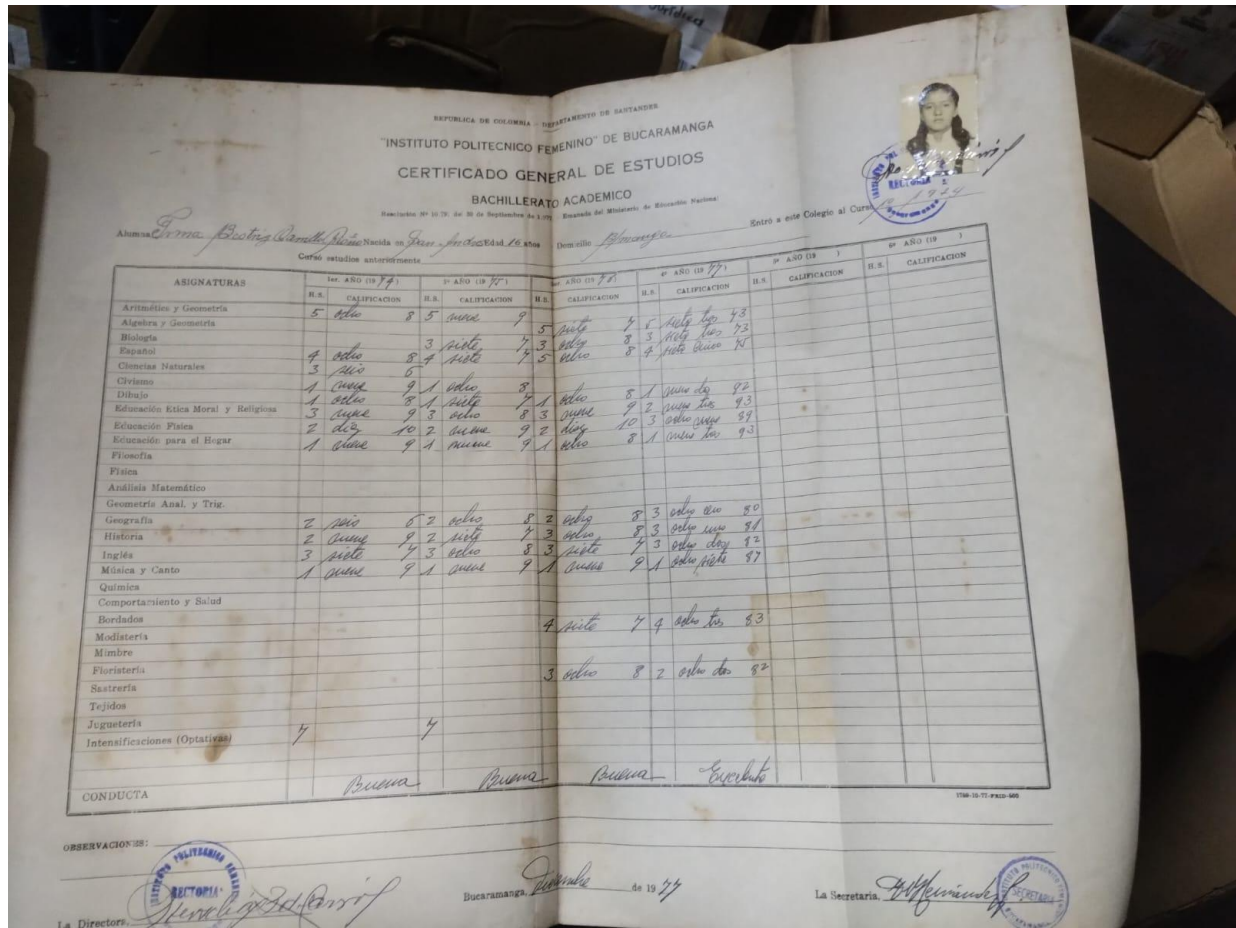 REPUBLICA DE COLOMBIA - DEPARTAMENTO DE SANTANDER
"INSTITUTO POLITECNICO FEMENINO" DE BUCARAMANGA
CERTIFICADO GENERAL DE ESTUDIOS
BACHILLERATO ACADEMICO
Emanada del Ministerio de Educación Nacional
RECTORIA
Entró a este Colegio al Curso 1974
Alumna Irma Beatriz Nacida en San Andres Edad 16 años Domicilio B/manga
Cursó estudios anteriormente
ASIGNATURAS 1er. AÑO (19 74) 2º AÑO (19 75) 3er. AÑO (19 76) 4º AÑO (19 77) 5º AÑO (19 ) 6º AÑO (19 )
H.S. CALIFICACION H.S. CALIFICACION H.S. CALIFICACION H.S. CALIFICACION H.S. CALIFICACION H.S. CALIFICACION
Aritmética y Geometría 5 ocho 8 5 nueve 9
Algebra y Geometría 5 siete 7 5 siete tres 73
Biología 3 siete 7 3 ocho 8 3 siete tres 73
Español 4 ocho 8 4 siete 7 5 ocho 8 4 siete cinco 75
Ciencias Naturales 3 seis 6
Civismo 1 nueve 9 1 ocho 8
Dibujo 1 ocho 8 1 siete 7 1 ocho 8 1 nueve dos 92
Educación Etica Moral y Religiosa 3 nueve 9 3 ocho 8 3 nueve 9 2 nueve tres 93
Educación Física 2 diez 10 2 nueve 9 2 diez 10 3 ocho nueve 89
Educación para el Hogar 1 nueve 9 1 nueve 9 1 ocho 8 1 nueve tres 93
Filosofía
Física
Análisis Matemático
Geometría Anal. y Trig.
Geografía 2 seis 6 2 ocho 8 2 ocho 8 3 ocho cero 80
Historia 2 nueve 9 2 siete 7 3 ocho 8 3 ocho uno 81
Inglés 3 siete 7 3 ocho 8 3 siete 7 3 ocho dos 82
Música y Canto 1 nueve 9 1 nueve 9 1 nueve 9 1 ocho siete 87
Química
Comportamiento y Salud
Bordados 4 siete 7 4 ocho tres 83
Modistería
Mimbre
Floristería 3 ocho 8 2 ocho dos 82
Sastrería
Tejidos
Juguetería
Intensificaciones (Optativas) 7 7
CONDUCTA Buena Buena Buena Excelente
OBSERVACIONES:
INSTITUTO POLITECNICO
RECTORIA
Bucaramanga, Diciembre de 19 77
La Directora,
La Secretaria,
SECRETARIA